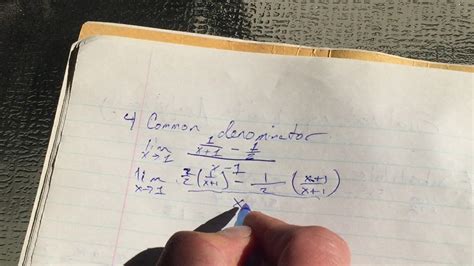 4) Common denominator
lim x→1 (1/(x+1) - 1/2)/(x-1)
lim x→1 (2/2 (1/(x+1)) - 1/2 ((x+1)/(x+1)))/x